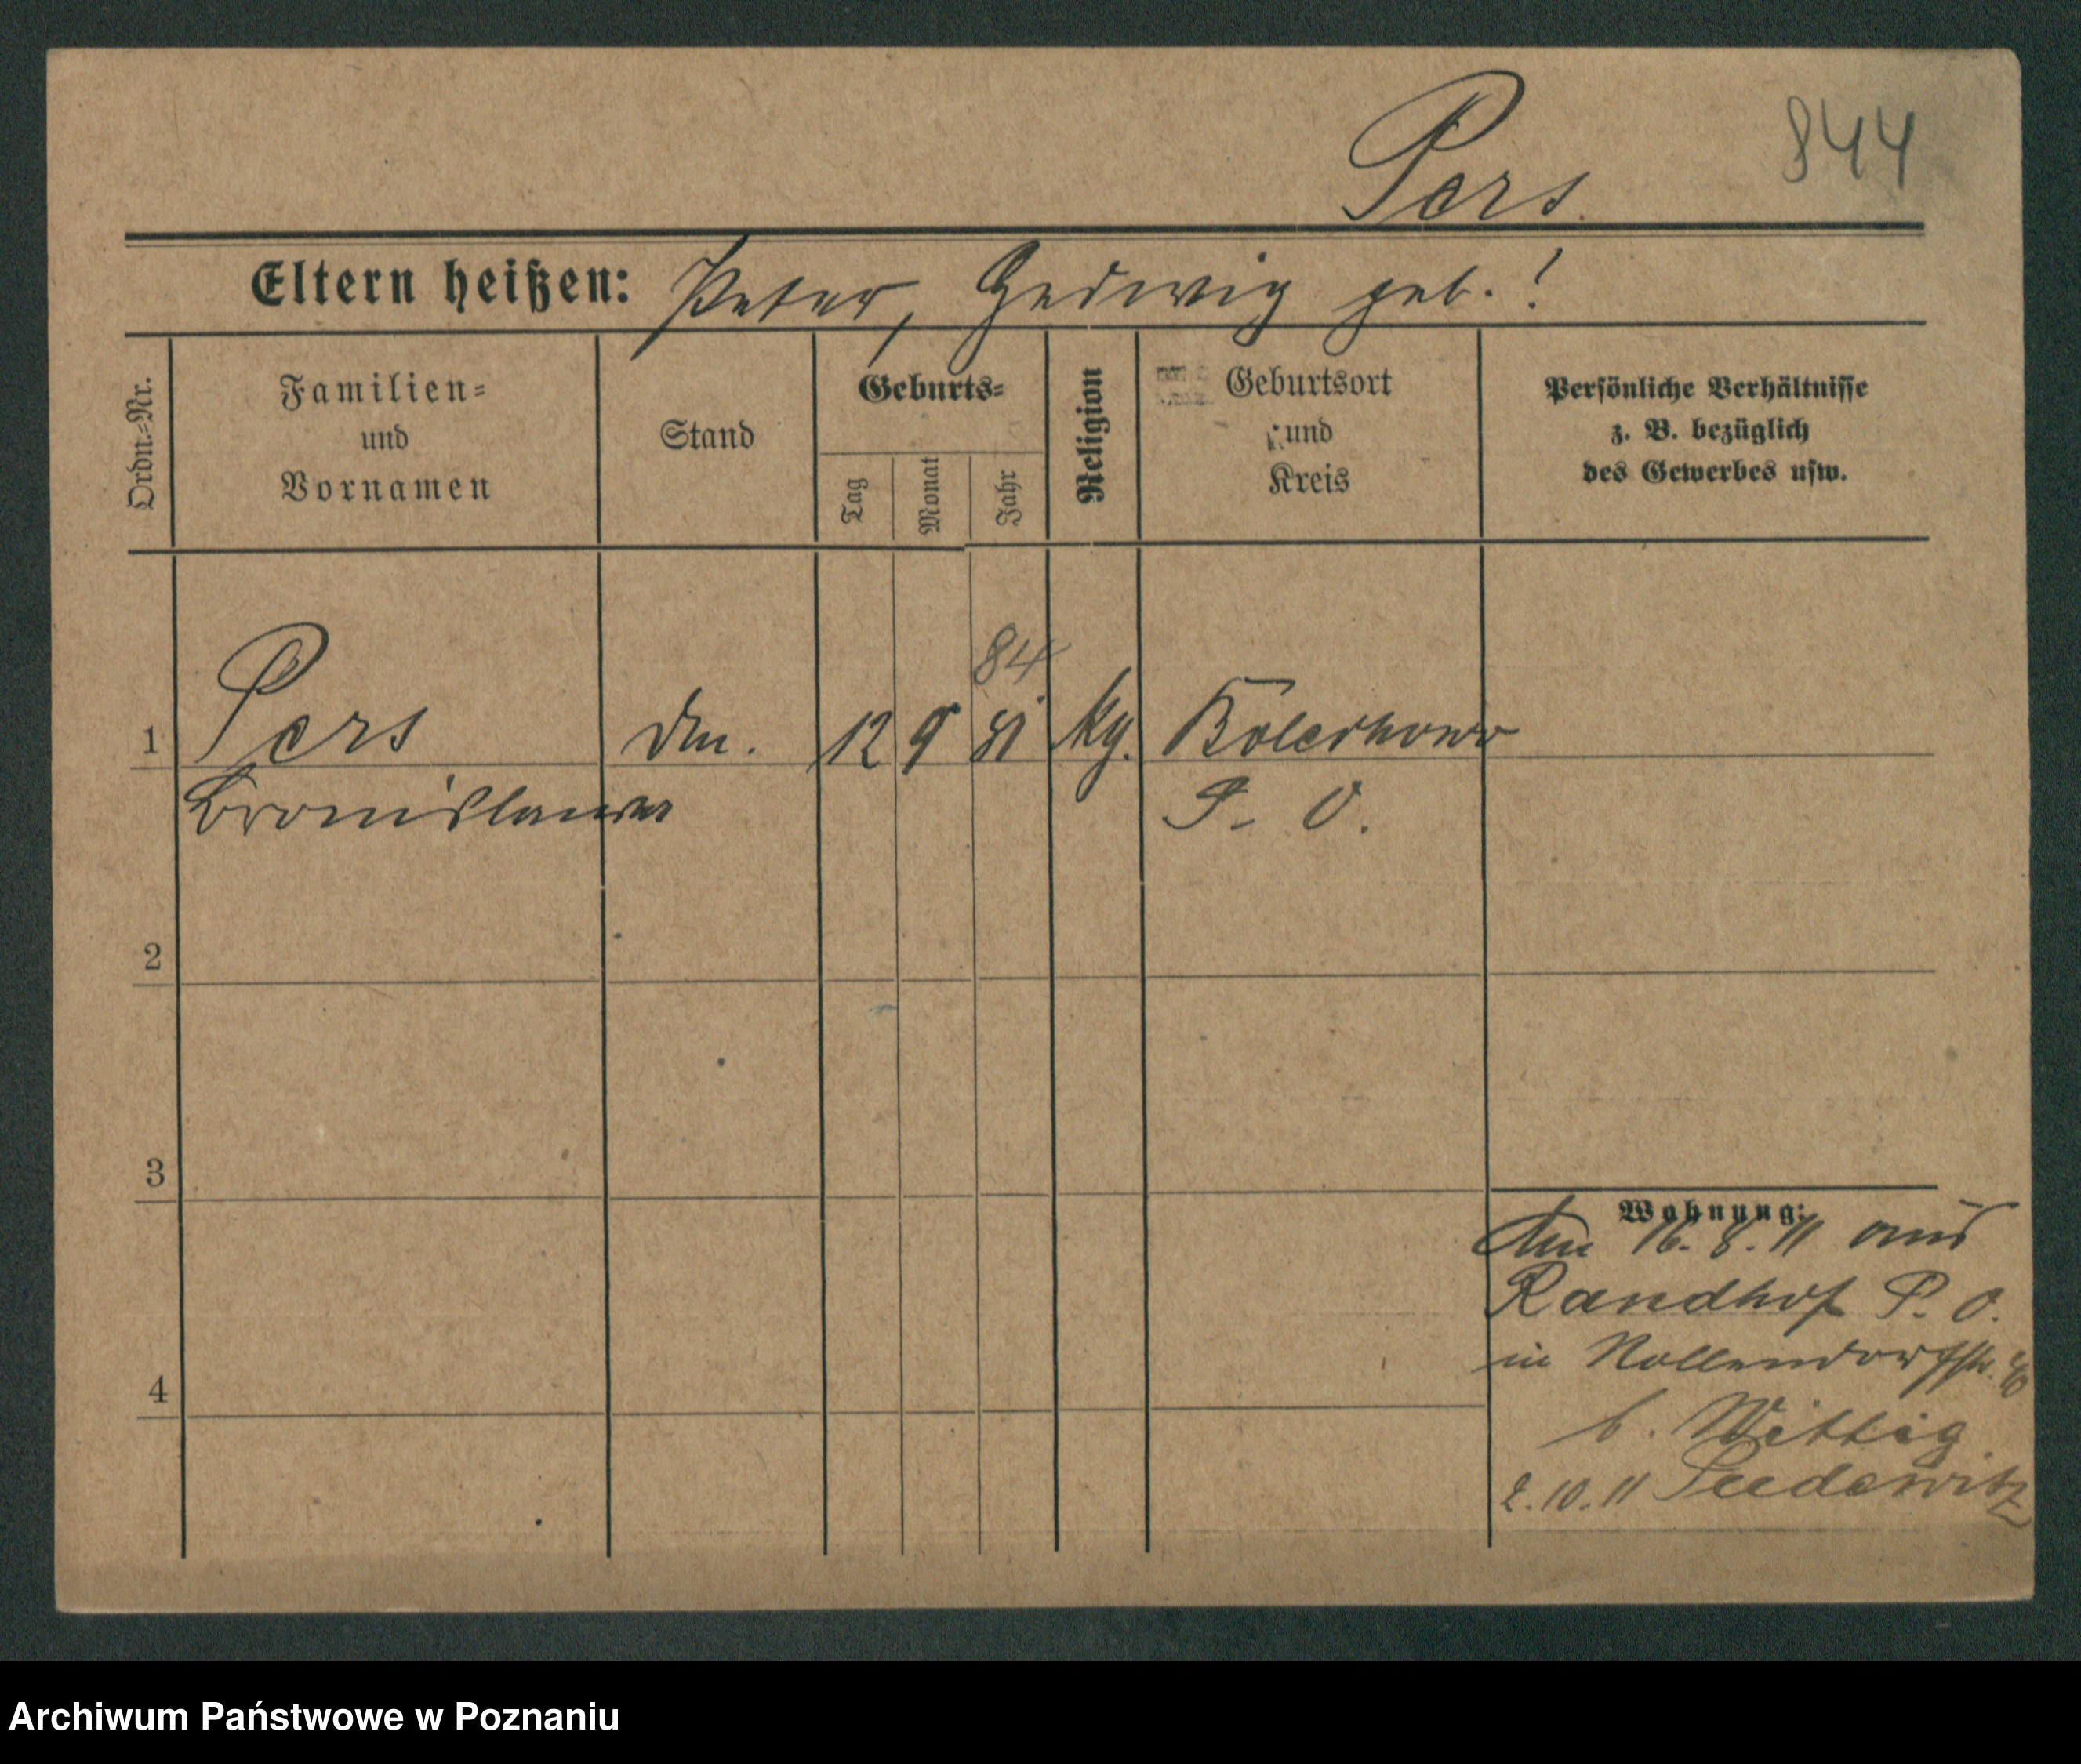 Pers.
844
Eltern heißen: Peter, Hedwig geb. !
Ordn.=Nr.
Familien=
und
Vornamen
Stand
Geburts=
Tag
Monat
Jahr
Religion
Geburtsort
und
Kreis
Persönliche Verhältnisse
z. B. bezüglich
des Gewerbes usw.
84
1 Pers 12 9 81
Bronislawa P. O.
2
3
4
Wohnung:
16. 8. 11 aus
Randhof P. O.
in Nollendorfstr.
b. Wittig
2.10.11
Archiwum Państwowe w Poznaniu